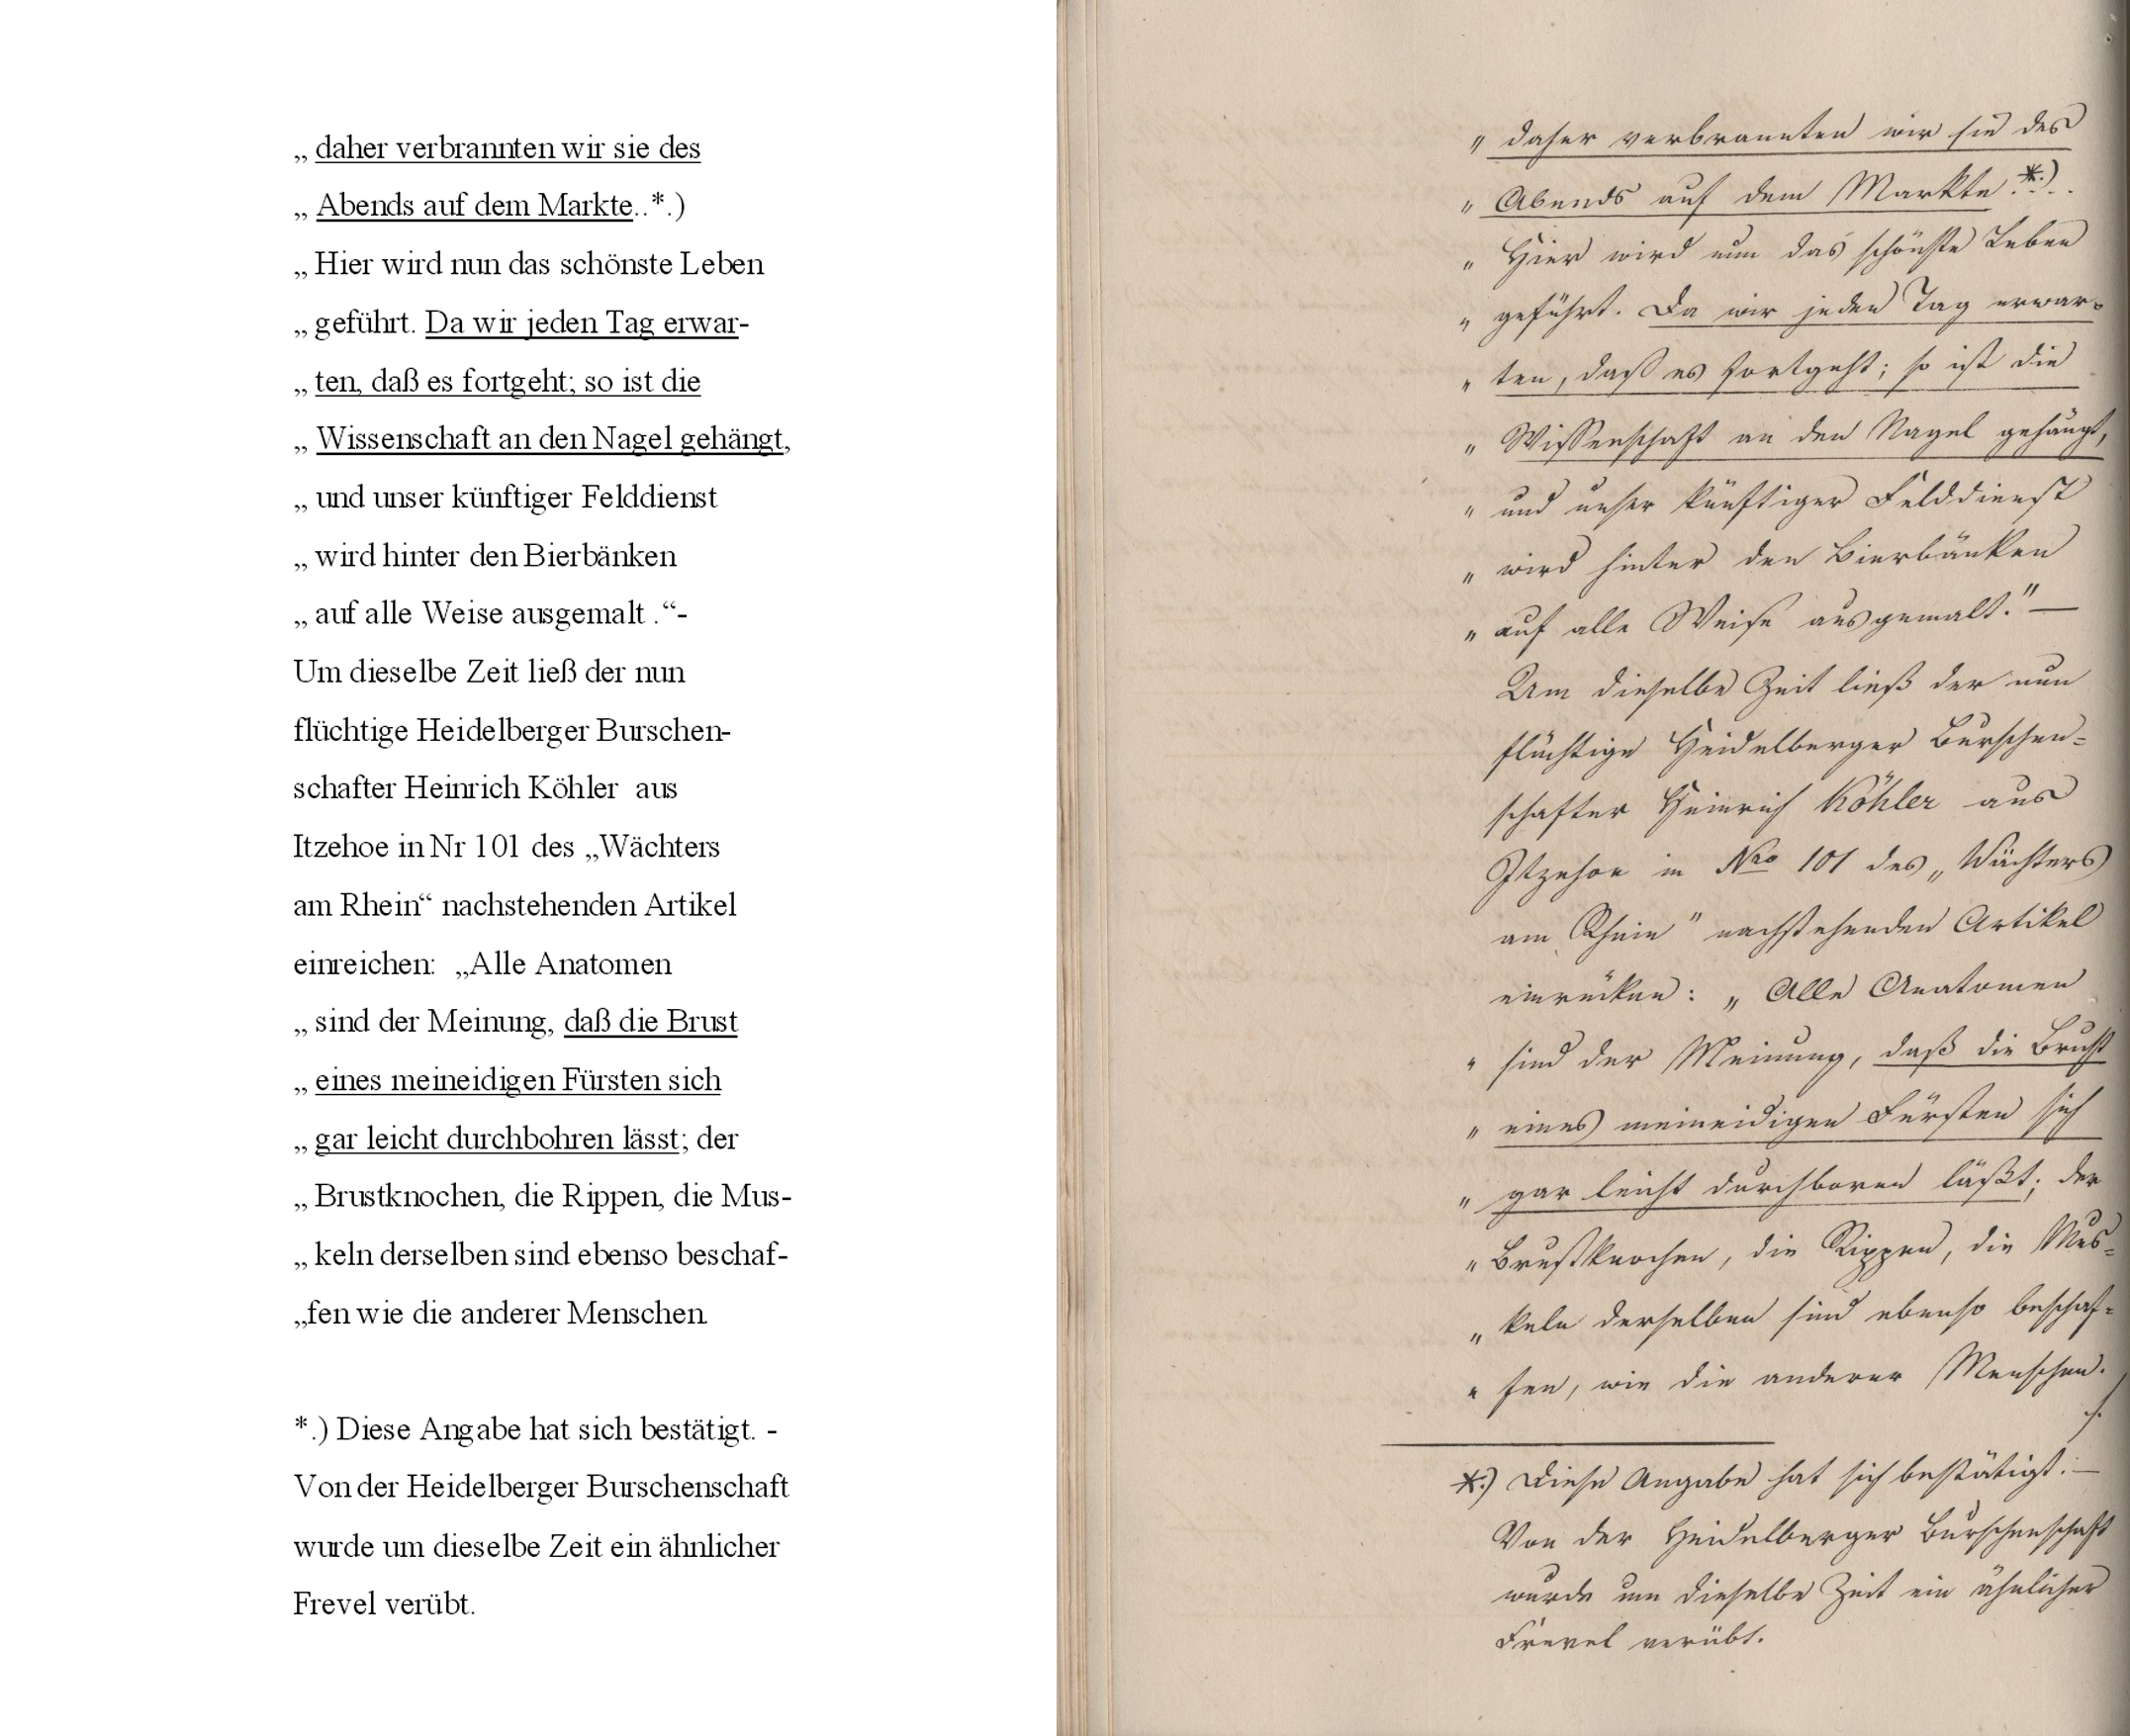 „ daher verbrannten wir sie des
„ Abends auf dem Markte..*.)
„ Hier wird nun das schönste Leben
„ geführt. Da wir jeden Tag erwar-
„ ten, daß es fortgeht; so ist die
„ Wissenschaft an den Nagel gehängt,
„ und unser künftiger Felddienst
„ wird hinter den Bierbänken
„ auf alle Weise ausgemalt .“-
Um dieselbe Zeit ließ der nun
flüchtige Heidelberger Burschen-
schafter Heinrich Köhler  aus
Itzehoe in Nr 101 des „Wächters
am Rhein“ nachstehenden Artikel
einreichen:  „Alle Anatomen
„ sind der Meinung, daß die Brust
„ eines meineidigen Fürsten sich
„ gar leicht durchbohren lässt; der
„ Brustknochen, die Rippen, die Mus-
„ keln derselben sind ebenso beschaf-
„fen wie die anderer Menschen.
*.) Diese Angabe hat sich bestätigt. -
Von der Heidelberger Burschenschaft
wurde um dieselbe Zeit ein ähnlicher
Frevel verübt.
„ daher verbrannten wir sie des
„ Abends auf dem Markte *.)..
„ Hier wird nun das schönste Leben
„ geführt. Da wir jeden Tag erwar-
„ ten, daß es fortgeht; so ist die
„ Wissenschaft an den Nagel gehängt,
„ und unser künftiger Felddienst
„ wird hinter den Bierbänken
„ auf alle Weise ausgemalt." —
Um dieselbe Zeit ließ der nun
flüchtige Heidelberger Burschen=
schafter Heinrich Köhler aus
Itzehoe in Nro 101 des „Wächters
am Rhein" nachstehenden Artikel
einrücken: „Alle Anatomen
„ sind der Meinung, daß die Brust
„ eines meineidigen Fürsten sich
„ gar leicht durchboren läßt; der
„ Brustknochen, die Rippen, die Mus=
„ keln derselben sind ebenso beschaf=
„ fen, wie die anderer Menschen.
*.) Diese Angabe hat sich bestätigt. —
Von der Heidelberger Burschenschaft
wurde um dieselbe Zeit ein ähnlicher
Frevel verübt.